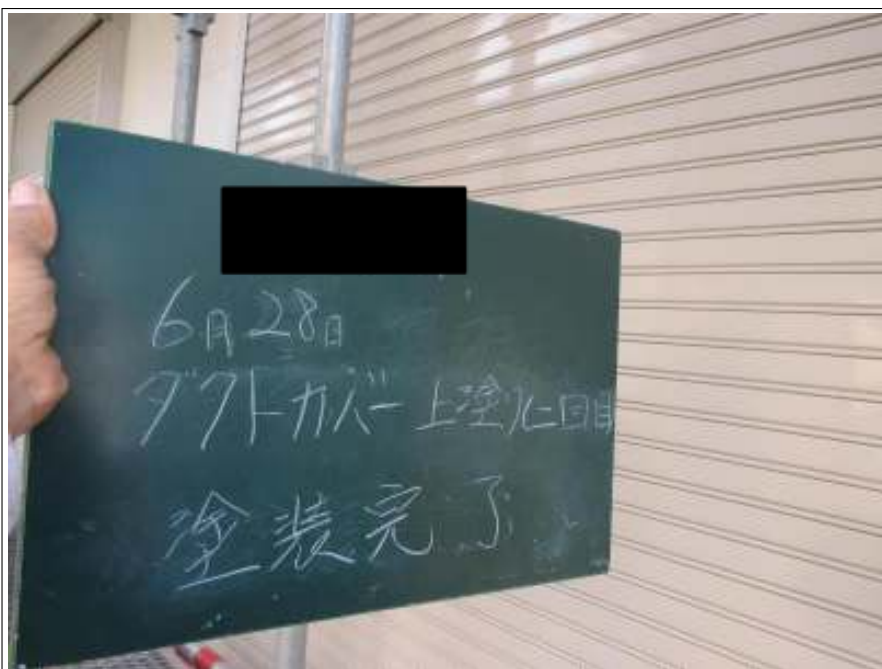 6月28日
ダクトカバー上塗り二回目
塗装完了